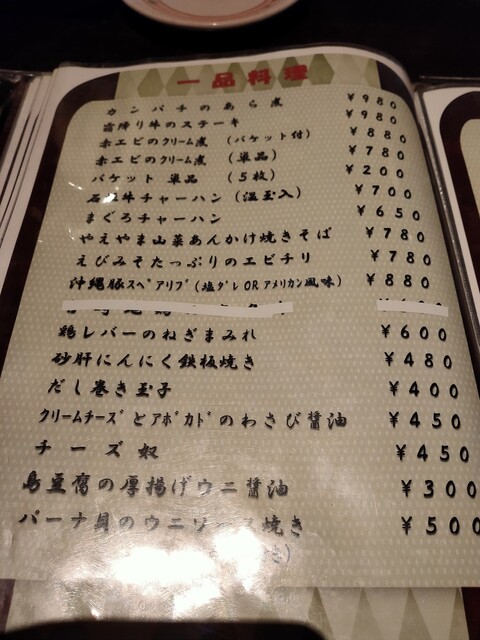 一品料理
カンパチのあら煮 ¥980
霜降り牛のステーキ ¥980
赤エビのクリーム煮 (バケット付) ¥880
赤エビのクリーム煮 (単品) ¥780
バケット 単品 (5枚) ¥200
石垣牛チャーハン (温玉入) ¥700
まぐろチャーハン ¥650
やえやま山菜あんかけ焼きそば ¥780
えびみそたっぷりのエビチリ ¥780
沖縄豚スペアリブ(塩ダレORアメリカン風味) ¥880
鶏レバーのねぎまみれ ¥600
砂肝にんにく鉄板焼き ¥480
だし巻き玉子 ¥400
クリームチーズとアボカドのわさび醤油 ¥450
チーズ奴 ¥450
島豆腐の厚揚げウニ醤油 ¥300
パーナ貝のウニソース焼き ¥500